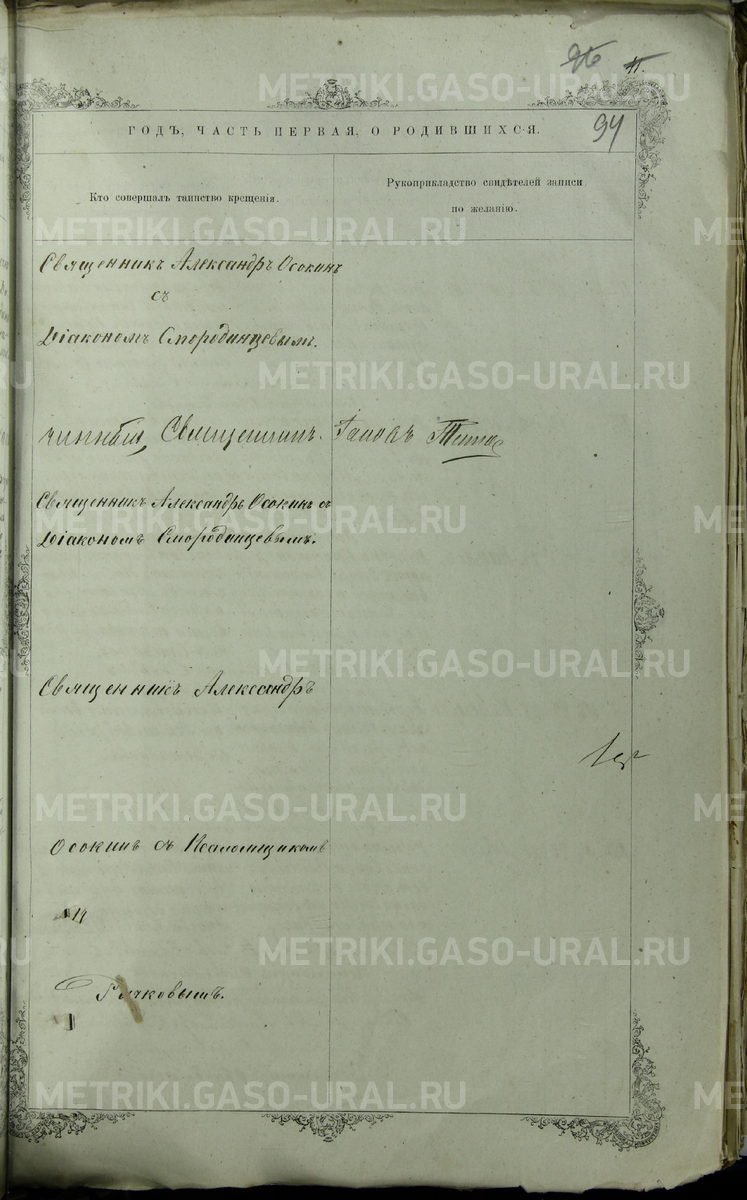 96 11.
94
ГОДЪ, ЧАСТЬ ПЕРВАЯ, О РОДИВШИХСЯ.
Кто совершалъ таинство крещенія.
Рукоприкладство свидѣтелей записи
по желанію.
Священникъ Александръ Осокинъ
съ
Діакономъ Смородинцевымъ.
Священникъ.
Священникъ Александръ Осокинъ съ
Діакономъ Смородинцевымъ.
Священникъ Александръ
Осокинъ съ Псаломщикомъ
Рычковымъ.
METRIKI.GASO-URAL.RU